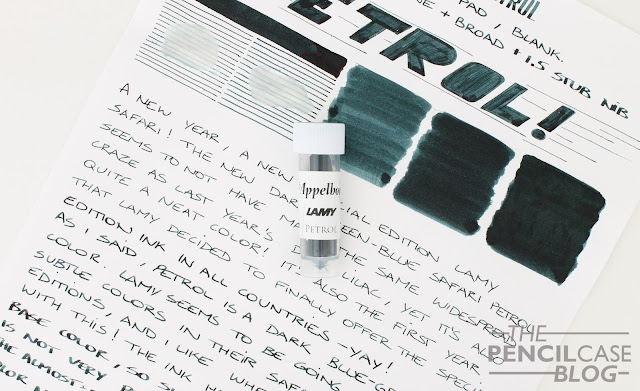 TROL
PAD / BLANK.
NE + BROAD + 1.5 STUB NIB
ETROL!
A NEW YEAR, A NEW CIAL EDITION LAMY
SAFARI! THE NEW DAR EEN-BLUE SAFARI PETROL
SEEMS TO NOT HAVE MA THE SAME WIDESPREAD
CRAZE AS LAST YEAR'S LILAC, YET IT'S
QUITE A NEAT COLOR! IT ALSO THE FIRST YEAR
THAT LAMY DECIDED TO FINALLY OFFER THE SPE
EDITION INK IN ALL COUNTRIES -YAY!
AS I SAID, PETROL IS A DARK BLUE-G
COLOR. LAMY SEEMS TO BE GOING
SUBTLE COLORS IN THEIR SAF
EDITIONS, AND I LIKE WHE
WITH THIS! THE INK H
BASE COLOR, SO S
IS NOT VERY
THE ALMOST
Appelbo
LAMY
PETROL
THE
PENCILCASE
BLOG